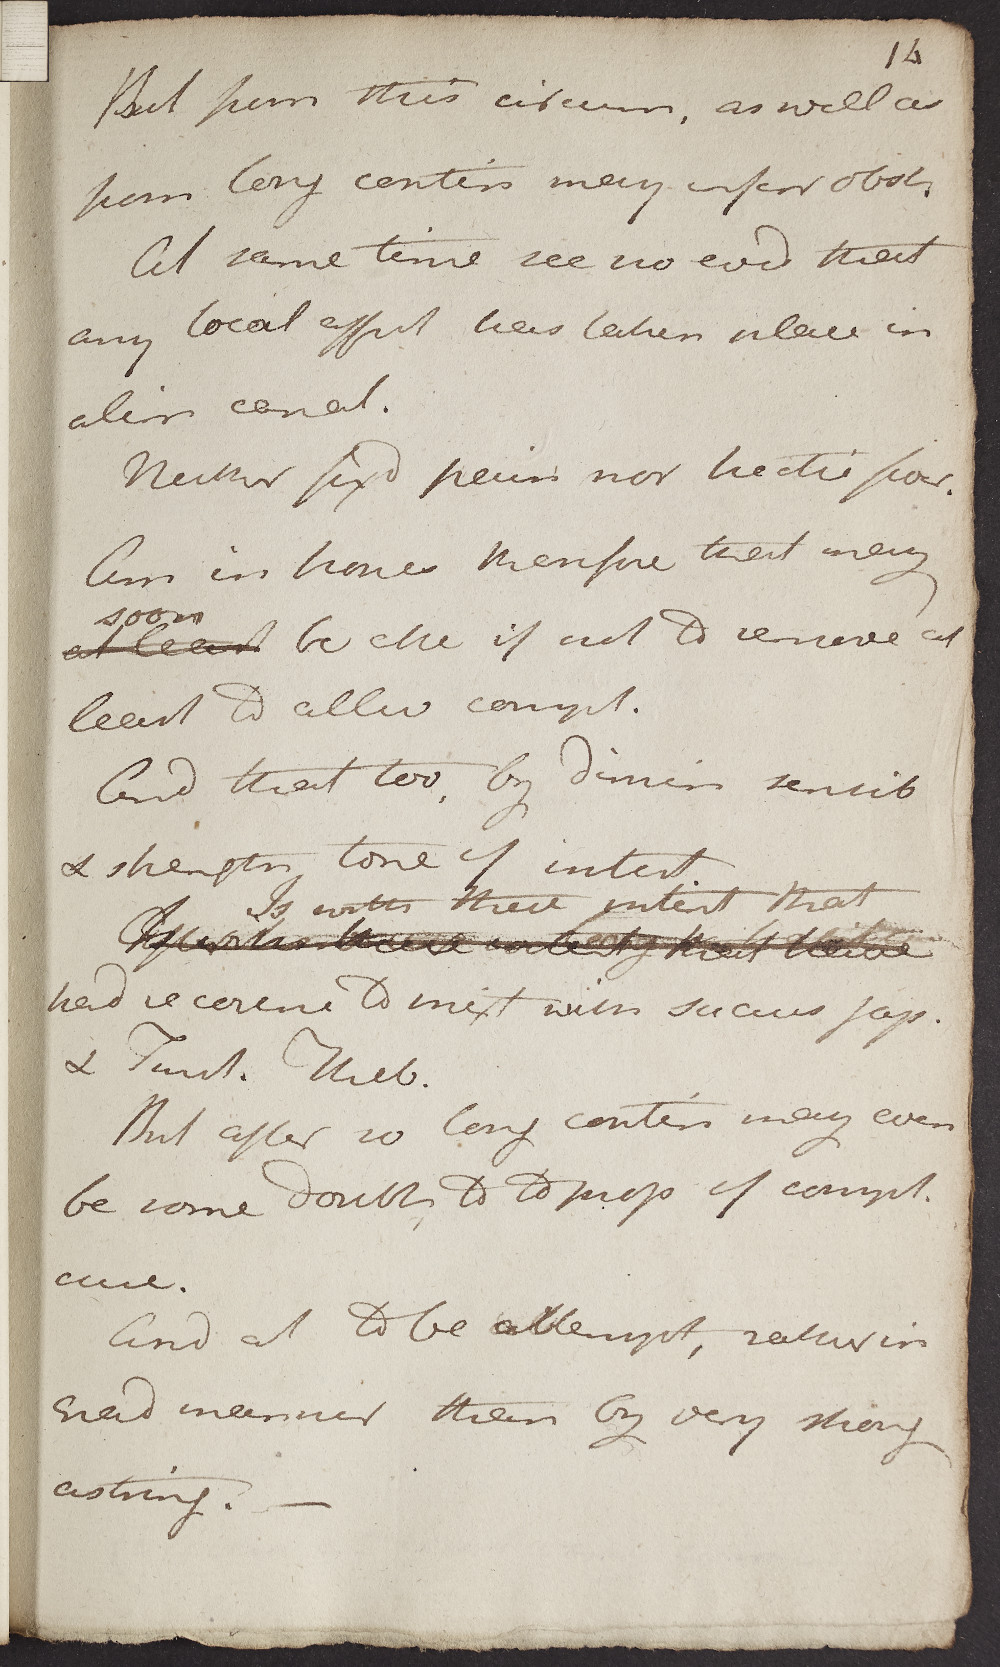 14
But from this circum, as well as
from long contin may infer obst.
At same time see no evid that
any local affect has taken place in
alim canal.
Neither fix'd pain nor hectic fever.
Am in hopes therefore that may
soon
at least be able if not to remove at
least to allev compl.
And that too, by dimin sensib
& strengthn tone of intest
Is with these intent that
with these that have
had recourse to mixt with succus jap.
& Tinct. Theb.
But after so long contin may even
be some doubt, to prosp of compl.
cure.
And at to be attempt, rather in
grad manner than by very strong
astring. —